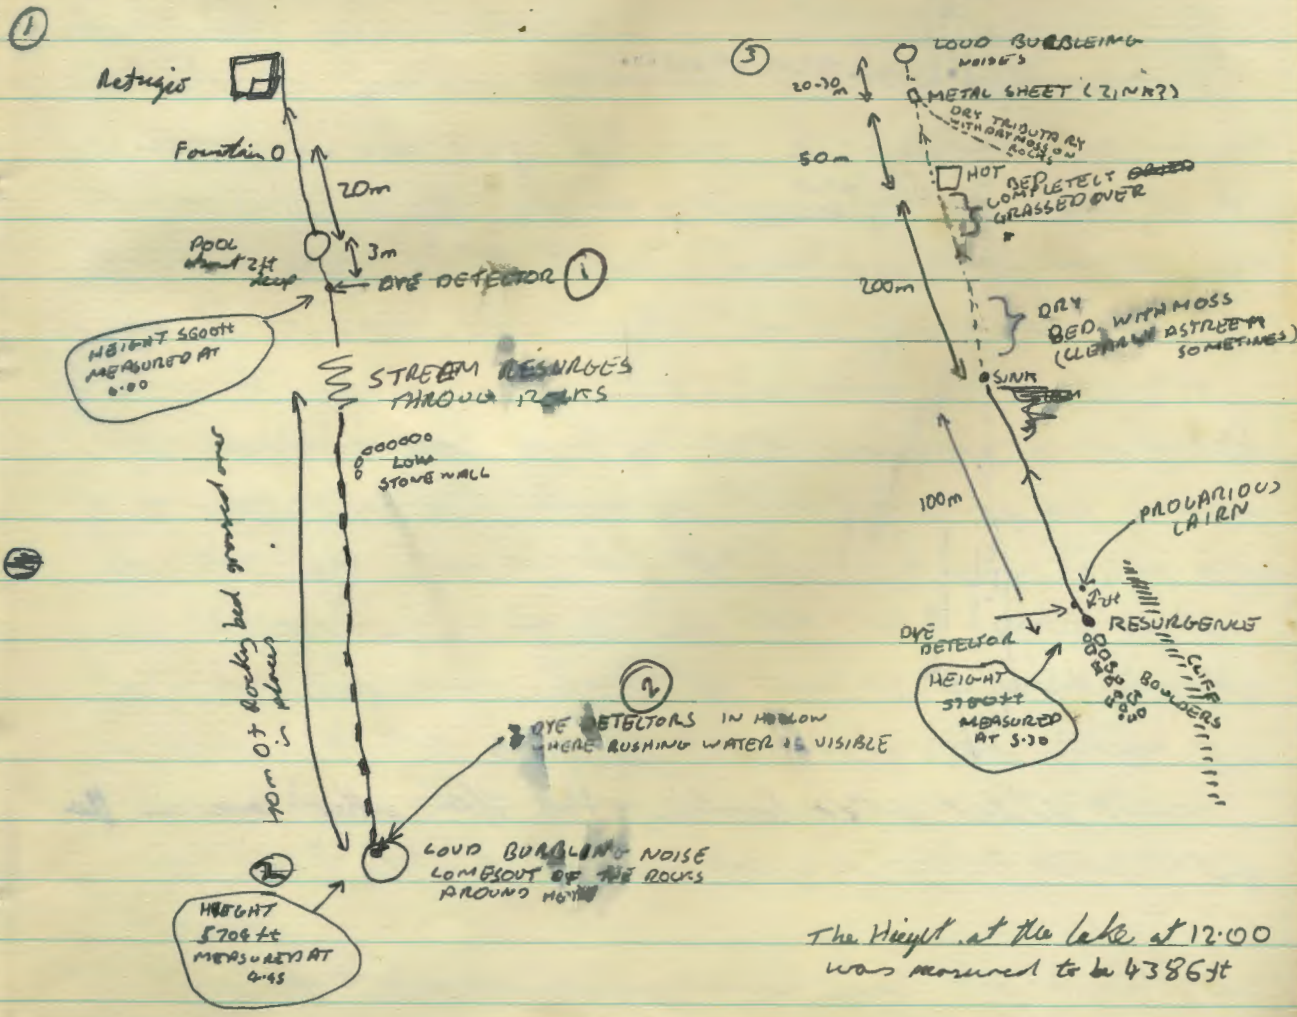 ①
Refugio
Fountain O
20m
POOL
about 2ft
deep
3m
DYE DETECTOR ①
HEIGHT 5600ft
MEASURED AT
6.00
STREAM RESURGES
THROUGH ROCKS
LOW
STONE WALL
40m Of Rocky bed grassed over
in places
②
DYE DETECTORS IN HOLLOW
WHERE RUSHING WATER IS VISIBLE
LOUD BURBLING NOISE
COMES OUT OF THE ROCKS
AROUND
2
HEIGHT
5704 ft
MEASURED AT
4.45
③
LOUD BURBLEING
NOISES
20-30
m
METAL SHEET (ZINK?)
DRY TRIBUTARY
WITH DRY MOSS ON
ROCKS
50m
HOT
BED
COMPLETELY
GRASSED OVER
200m
DRY
BED WITH MOSS
(CLEARLY A STREEM
SOMETIMES)
SINK
100m
PROCARIOUS
CAIRN
2ft
RESURGENCE
DYE
DETECTOR
CLIFF
BOULDERS
HEIGHT
5780ft
MEASURED
AT 5.30
The Hieght at the lake at 12.00
was measured to be 4386ft